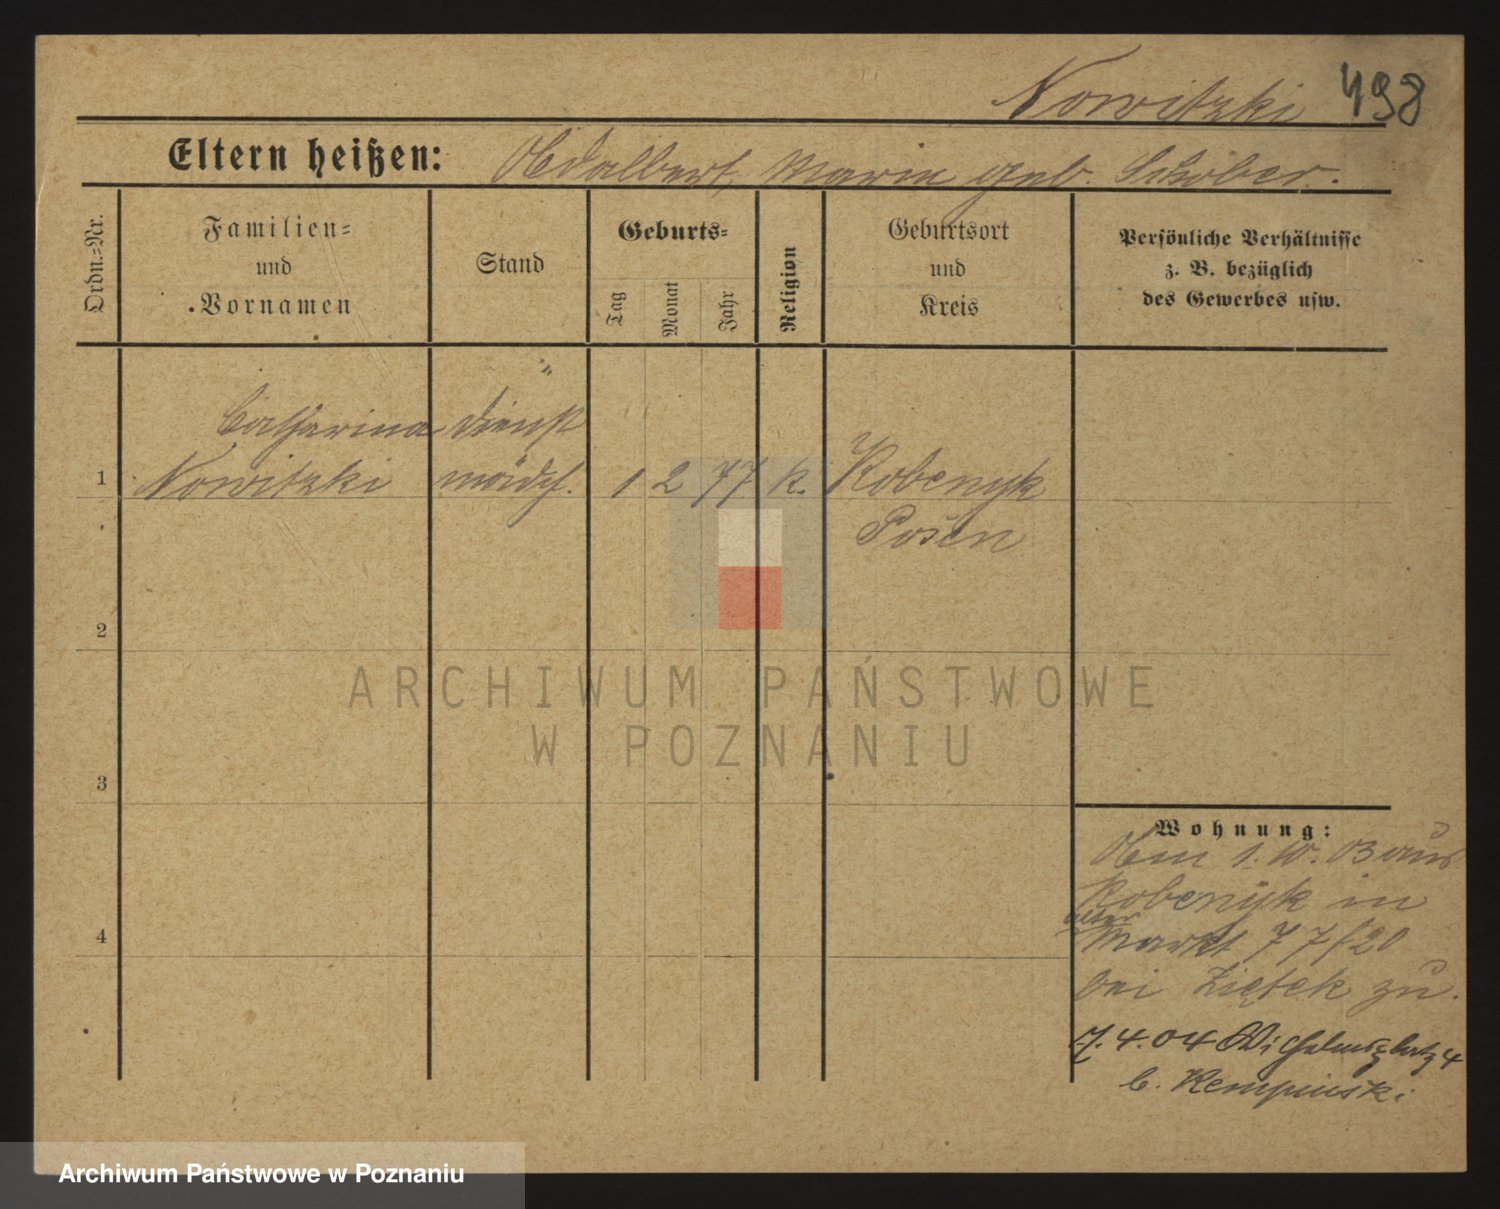 Nowitzki 498
Eltern heißen: Adalbert, Marie geb. Schober.
Ordn.-Nr.
Familien-
und
Vornamen
Stand
Geburts-
Tag
Monat
Jahr
Religion
Geburtsort
und
Kreis
Persönliche Verhältnisse
z. B. bezüglich
des Gewerbes usw.
Catharina Dienst
1 Nowitzki mädch. 1 2 77 k. Kobenyk
Posen
2
3
4
Wohnung:
Am 1. 10. 03 aus
Kobenyk in
alter
Markt 77/20
bei Ziętek zu.
7. 4. 04 Wilhelmsplatz 4
b. Kempinski
ARCHIWUM PAŃSTWOWE
W POZNANIU
Archiwum Państwowe w Poznaniu